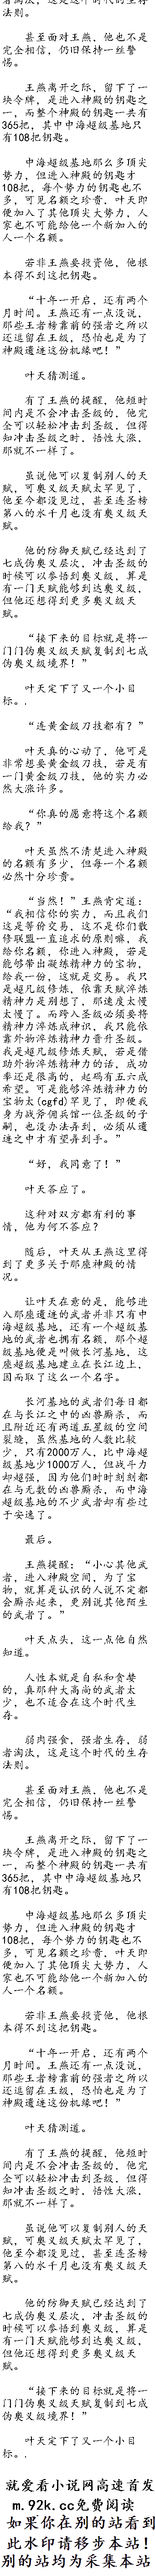 者淘汰，这是这个时代的生存
法则。
甚至面对王燕，他也不是
完全相信，仍旧保持一丝警
惕。
王燕离开之际，留下了一
块令牌，是进入神殿的钥匙之
一，而整个神殿的钥匙一共有
365把，其中中海超级基地只
有108把钥匙。
中海超级基地那么多顶尖
势力，但进入神殿的钥匙才
108把，每个势力的钥匙也不
多，可见名额之珍贵，叶天即
便加入了其他顶尖大势力，人
家也不可能给他一个新加入的
人一个名额。
若非王燕要投资他，他根
本得不到这把钥匙。
“十年一开启，还有两个
月时间。王燕还有一点没说，
那些王者榜靠前的强者之所以
还逗留在王级，恐怕也是为了
神殿遗迹这份机缘吧！”
叶天猜测道。
有了王燕的提醒，他短时
间内是不会冲击圣级的，他完
全可以轻松冲击到圣级，但得
知冲击圣级之时，悟性大涨，
那就不一样了。
虽说他可以复制别人的天
赋，可奥义级天赋太罕见了，
他至今都没见过，甚至连圣榜
第八的水千月也没有奥义级天
赋。
他的防御天赋已经达到了
七成伪奥义层次，冲击圣级的
时候可以参悟到奥义级，算是
有一门天赋能够到达奥义级，
但他还想得到更多奥义级天
赋。
“接下来的目标就是将一
门门伪奥义级天赋复制到七成
伪奥义级境界！”
叶天定下了又一个小目
标。.
“连黄金级刀技都有？”
叶天真的心动了，他可是
非常想要黄金级刀技，若是有
一门黄金级刀技，他的实力必
然大涨许多。
“你真的愿意将这个名额
给我？”
叶天虽然不清楚进入神殿
的名额有多少，但每一个名额
必然十分珍贵。
“当然！”王燕肯定道：
“我相信你的实力，而且我们
这是等价交易，这不是你们散
修联盟一直追求的原则嘛，我
给你名额，你进入神殿，若是
能够带出凝练精神力的宝物，
给我一份，这就是交易。我只
是超凡级修炼，依靠天赋淬炼
精神力是别想了，那速度太慢
太慢了。而跨入圣级必须要将
精神力淬炼成神识，我只能依
靠外物淬炼精神力晋升圣级。
我是超凡级修炼天赋，若是借
助外物淬炼精神力的话，成功
率还是很高的，起码有五六成
希望。可是能够淬炼精神力的
宝物太(cgfd)罕见了，即便我
身为战斧佣兵馆一位圣级的子
嗣，也没办法弄到，必须从遗
迹之中才有望弄到手。”
“好，我同意了！”
叶天答应了。
这种对双方都有利的事
情，他为何不答应？
随后，叶天从王燕这里得
到了更多关于那座神殿的情
况。
让叶天在意的是，能够进
入那座遗迹的武者并非只有中
海超级基地，还有一个超级基
地的武者也拥有名额，那个超
级基地便是叫做长河基地，这
座超级基地建立在长江边上，
因而取了这么一个名字。
长河基地的武者们每日都
在与长江之中的凶兽厮杀，而
且附近还有两道五星级的空间
裂缝，虽然基地的人数比较
少，只有2000万人，比中海超
级基地少1000万人，但战斗力
却超强，因为他们时时刻刻都
在与无数的凶兽厮杀，而中海
超级基地的不少武者却有些过
于安逸了。
最后。
王燕提醒：“小心其他武
者，进入神殿空间，为了宝
物，就算是认识的人说不定都
会厮杀起来，更别说其他陌生
的武者了。”
叶天点头，这一点他自然
知道。
人性本就是自私和贪婪
的，真那种大高尚的武者太
少，也不适合在这个时代生
存。
弱肉强食，强者生存，弱
者淘汰，这是这个时代的生存
法则。
甚至面对王燕，他也不是
完全相信，仍旧保持一丝警
惕。
王燕离开之际，留下了一
块令牌，是进入神殿的钥匙之
一，而整个神殿的钥匙一共有
365把，其中中海超级基地只
有108把钥匙。
中海超级基地那么多顶尖
势力，但进入神殿的钥匙才
108把，每个势力的钥匙也不
多，可见名额之珍贵，叶天即
便加入了其他顶尖大势力，人
家也不可能给他一个新加入的
人一个名额。
若非王燕要投资他，他根
本得不到这把钥匙。
“十年一开启，还有两个
月时间。王燕还有一点没说，
那些王者榜靠前的强者之所以
还逗留在王级，恐怕也是为了
神殿遗迹这份机缘吧！”
叶天猜测道。
有了王燕的提醒，他短时
间内是不会冲击圣级的，他完
全可以轻松冲击到圣级，但得
知冲击圣级之时，悟性大涨，
那就不一样了。
虽说他可以复制别人的天
赋，可奥义级天赋太罕见了，
他至今都没见过，甚至连圣榜
第八的水千月也没有奥义级天
赋。
他的防御天赋已经达到了
七成伪奥义层次，冲击圣级的
时候可以参悟到奥义级，算是
有一门天赋能够到达奥义级，
但他还想得到更多奥义级天
赋。
“接下来的目标就是将一
门门伪奥义级天赋复制到七成
伪奥义级境界！”
叶天定下了又一个小目
标。.
就爱看小说网高速首发
m.92k.cc免费阅读
如果你在别的站看到
此水印请移步本站！
别的站均为采集本站